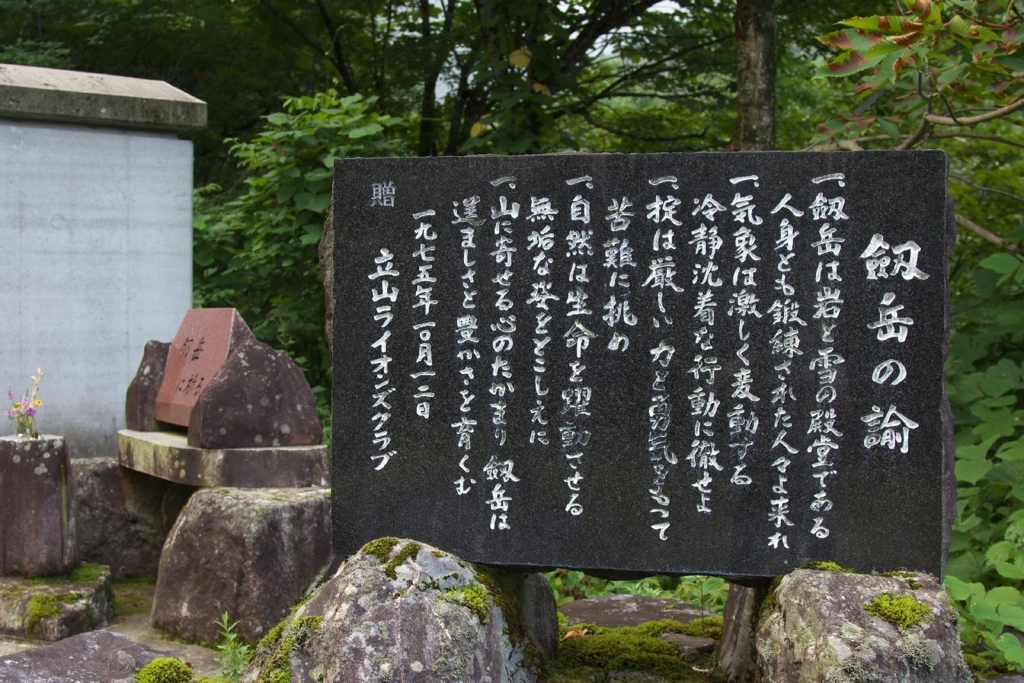 劔岳の諭
一、劔岳は岩と雪の殿堂である
人身とも鍛練された人々よ来れ
一、気象は激しく変動する
冷静沈着な行動に徹せよ
一、掟は厳しい力と勇気をもって
苦難に挑め
一、自然は生命を躍動させる
無垢な姿をとこしえに
一、山に寄せる心のたかまり 劔岳は
逞ましさと豊かさと育くむ
一九七五年一〇月一二日
贈 立山ライオンズクラブ